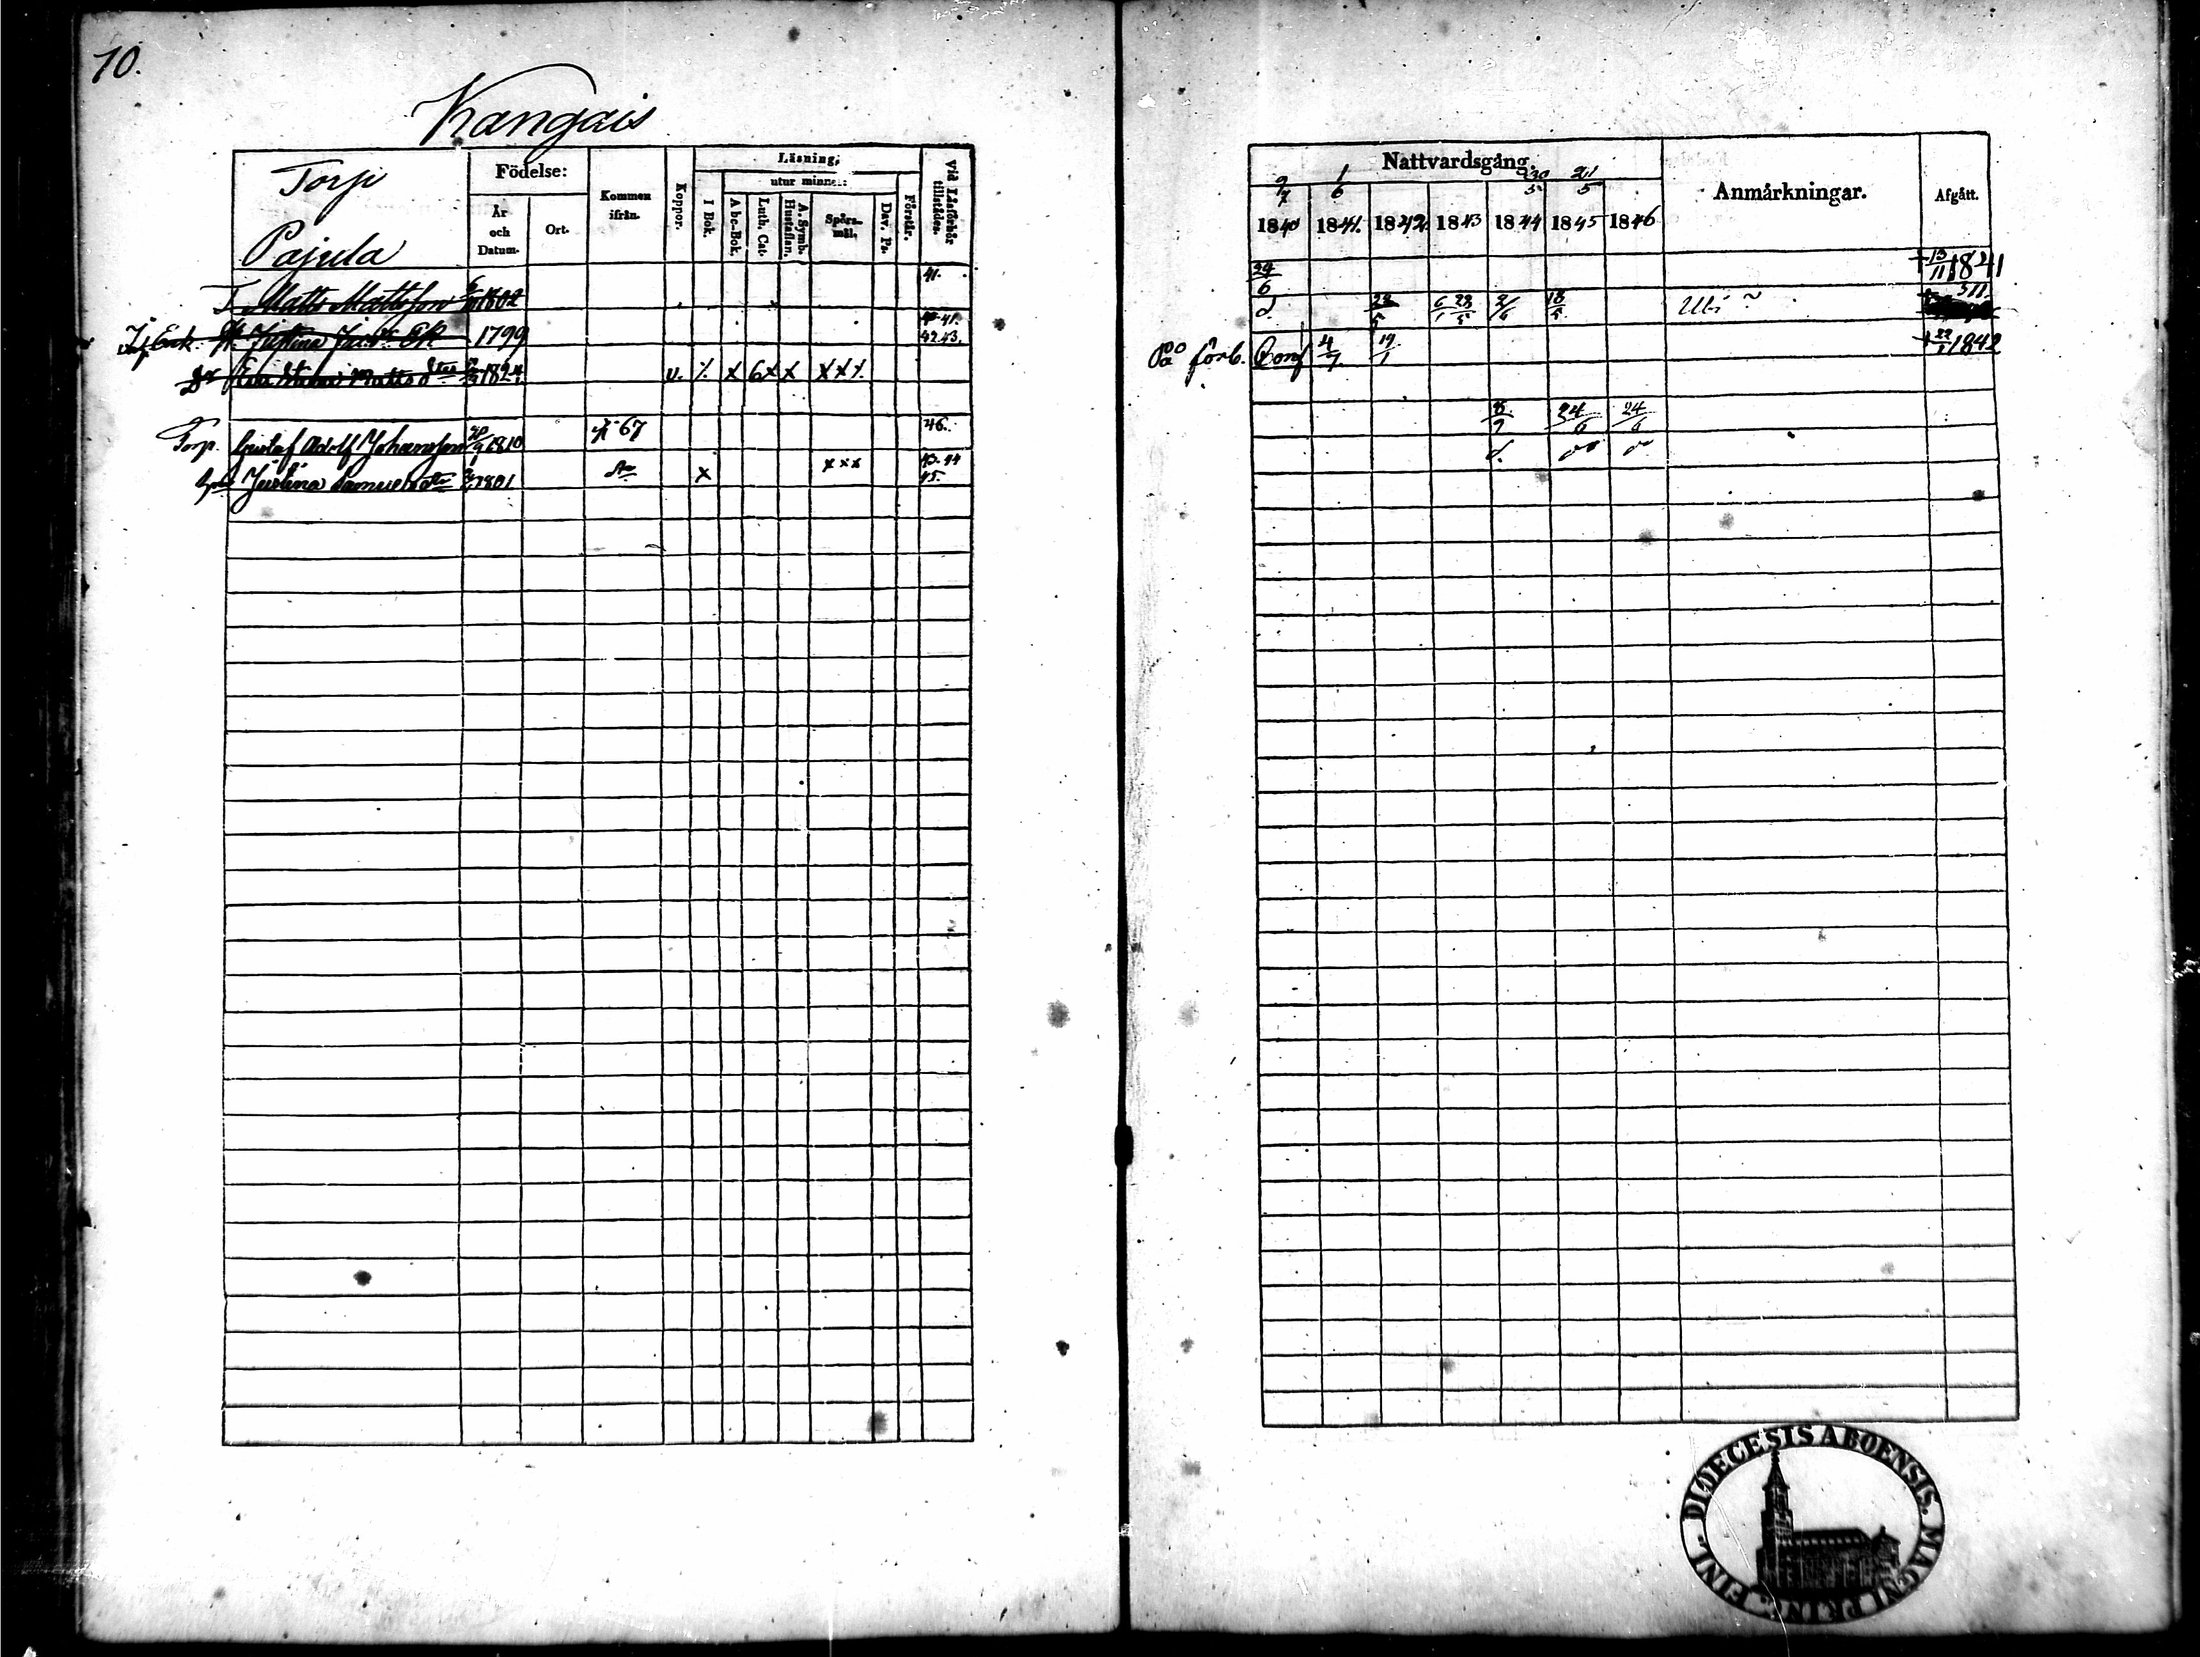 10.
Kangais
Torp
Pajula
Födelse:
År
och
Datum.
Ort.
Kommen
ifrån.
Koppor.
Läsning,
utur minnet:
I Bok.
Abc-Bok.
Luth. Cat.
A. Symb.
Hustaflan.
Spörs-
mål.
Dav. Ps.
Förstår.
Vid Läsförhör
tillstädes.
T. Matts Mattsson 1802 41.
Enk. Justina 1799 41.
42.43.
Matts dtr 1824 v. x 6 x x x x x
Torp. Gustaf Adolf Johansson 1810 67 46.
Justina Samuels dtr 1801 x x x x 43.44
45.
Nattvardsgång.
9/7 1/6 30/5 21/5
1840 1841. 1842 1843 1844 1845 1846
Anmärkningar.
Afgått.
24/6 † 13/11 1841
d. 28/5 6/1 28/5 2/6 18/5 311.
förb. Conf 4/7 19/1 † 22/1 1842
8/9 24/6 24/6
d.
DIOECESIS ABOENSIS. MAGNI PRINC. FINL.